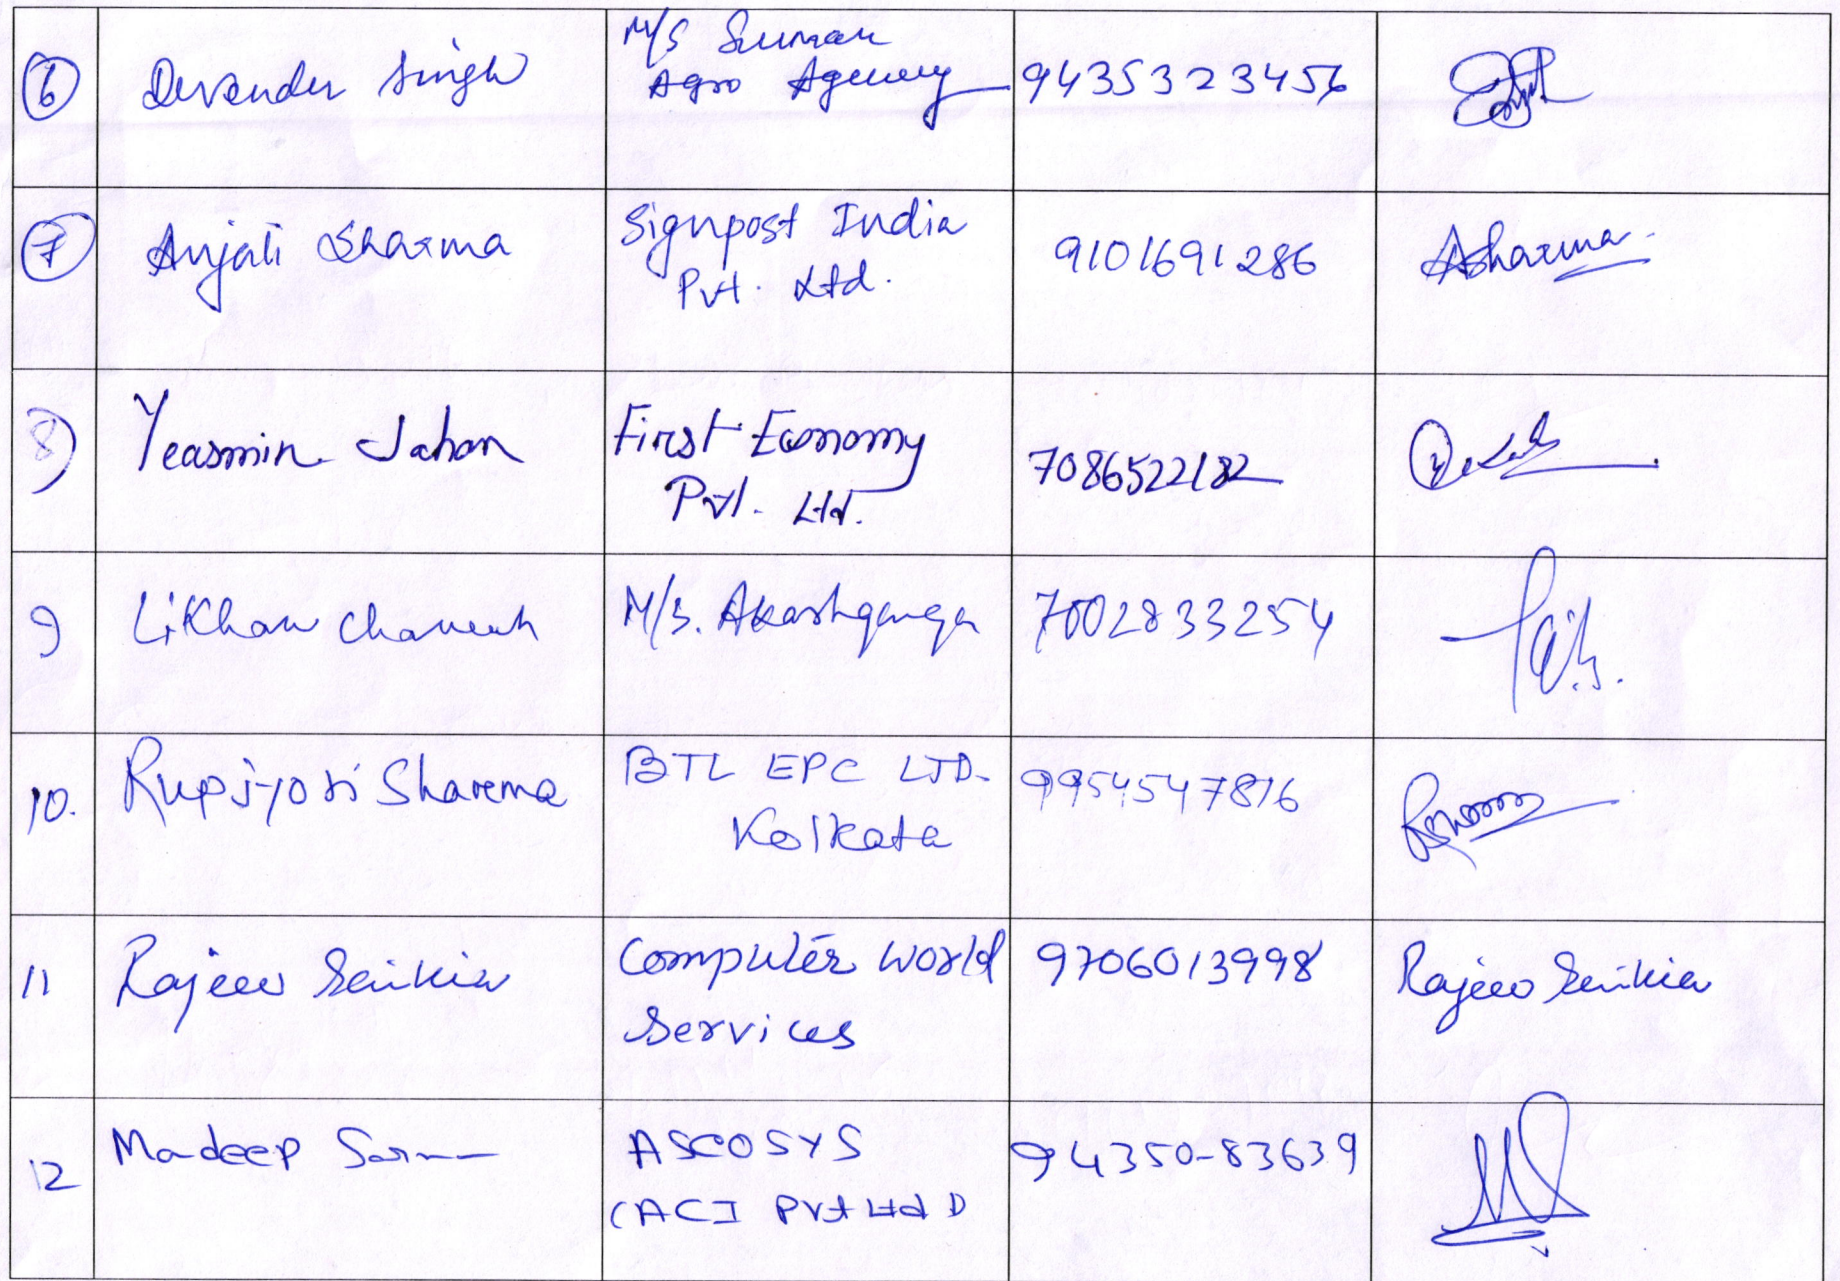 6 Devender Singh M/S Suman
Agro Agency 9435323456
7 Anjali Sharma Signpost India
Pvt. Ltd. 9101691286 ASharma
8) Yeasmin Jahan First Economy
Pvt. Ltd. 7086522182
9 Likhan M/S. Akashganga 7002833254
10. Rupjyoti Sharma BTL EPC LTD.
Kolkata 9954547816
11 Rajeev Saikia Computer World
Services 9706013998 Rajeev Saikia
12 Mandeep Sarma ASCOSYS
(ACI Pvt Ltd) 94350-83639